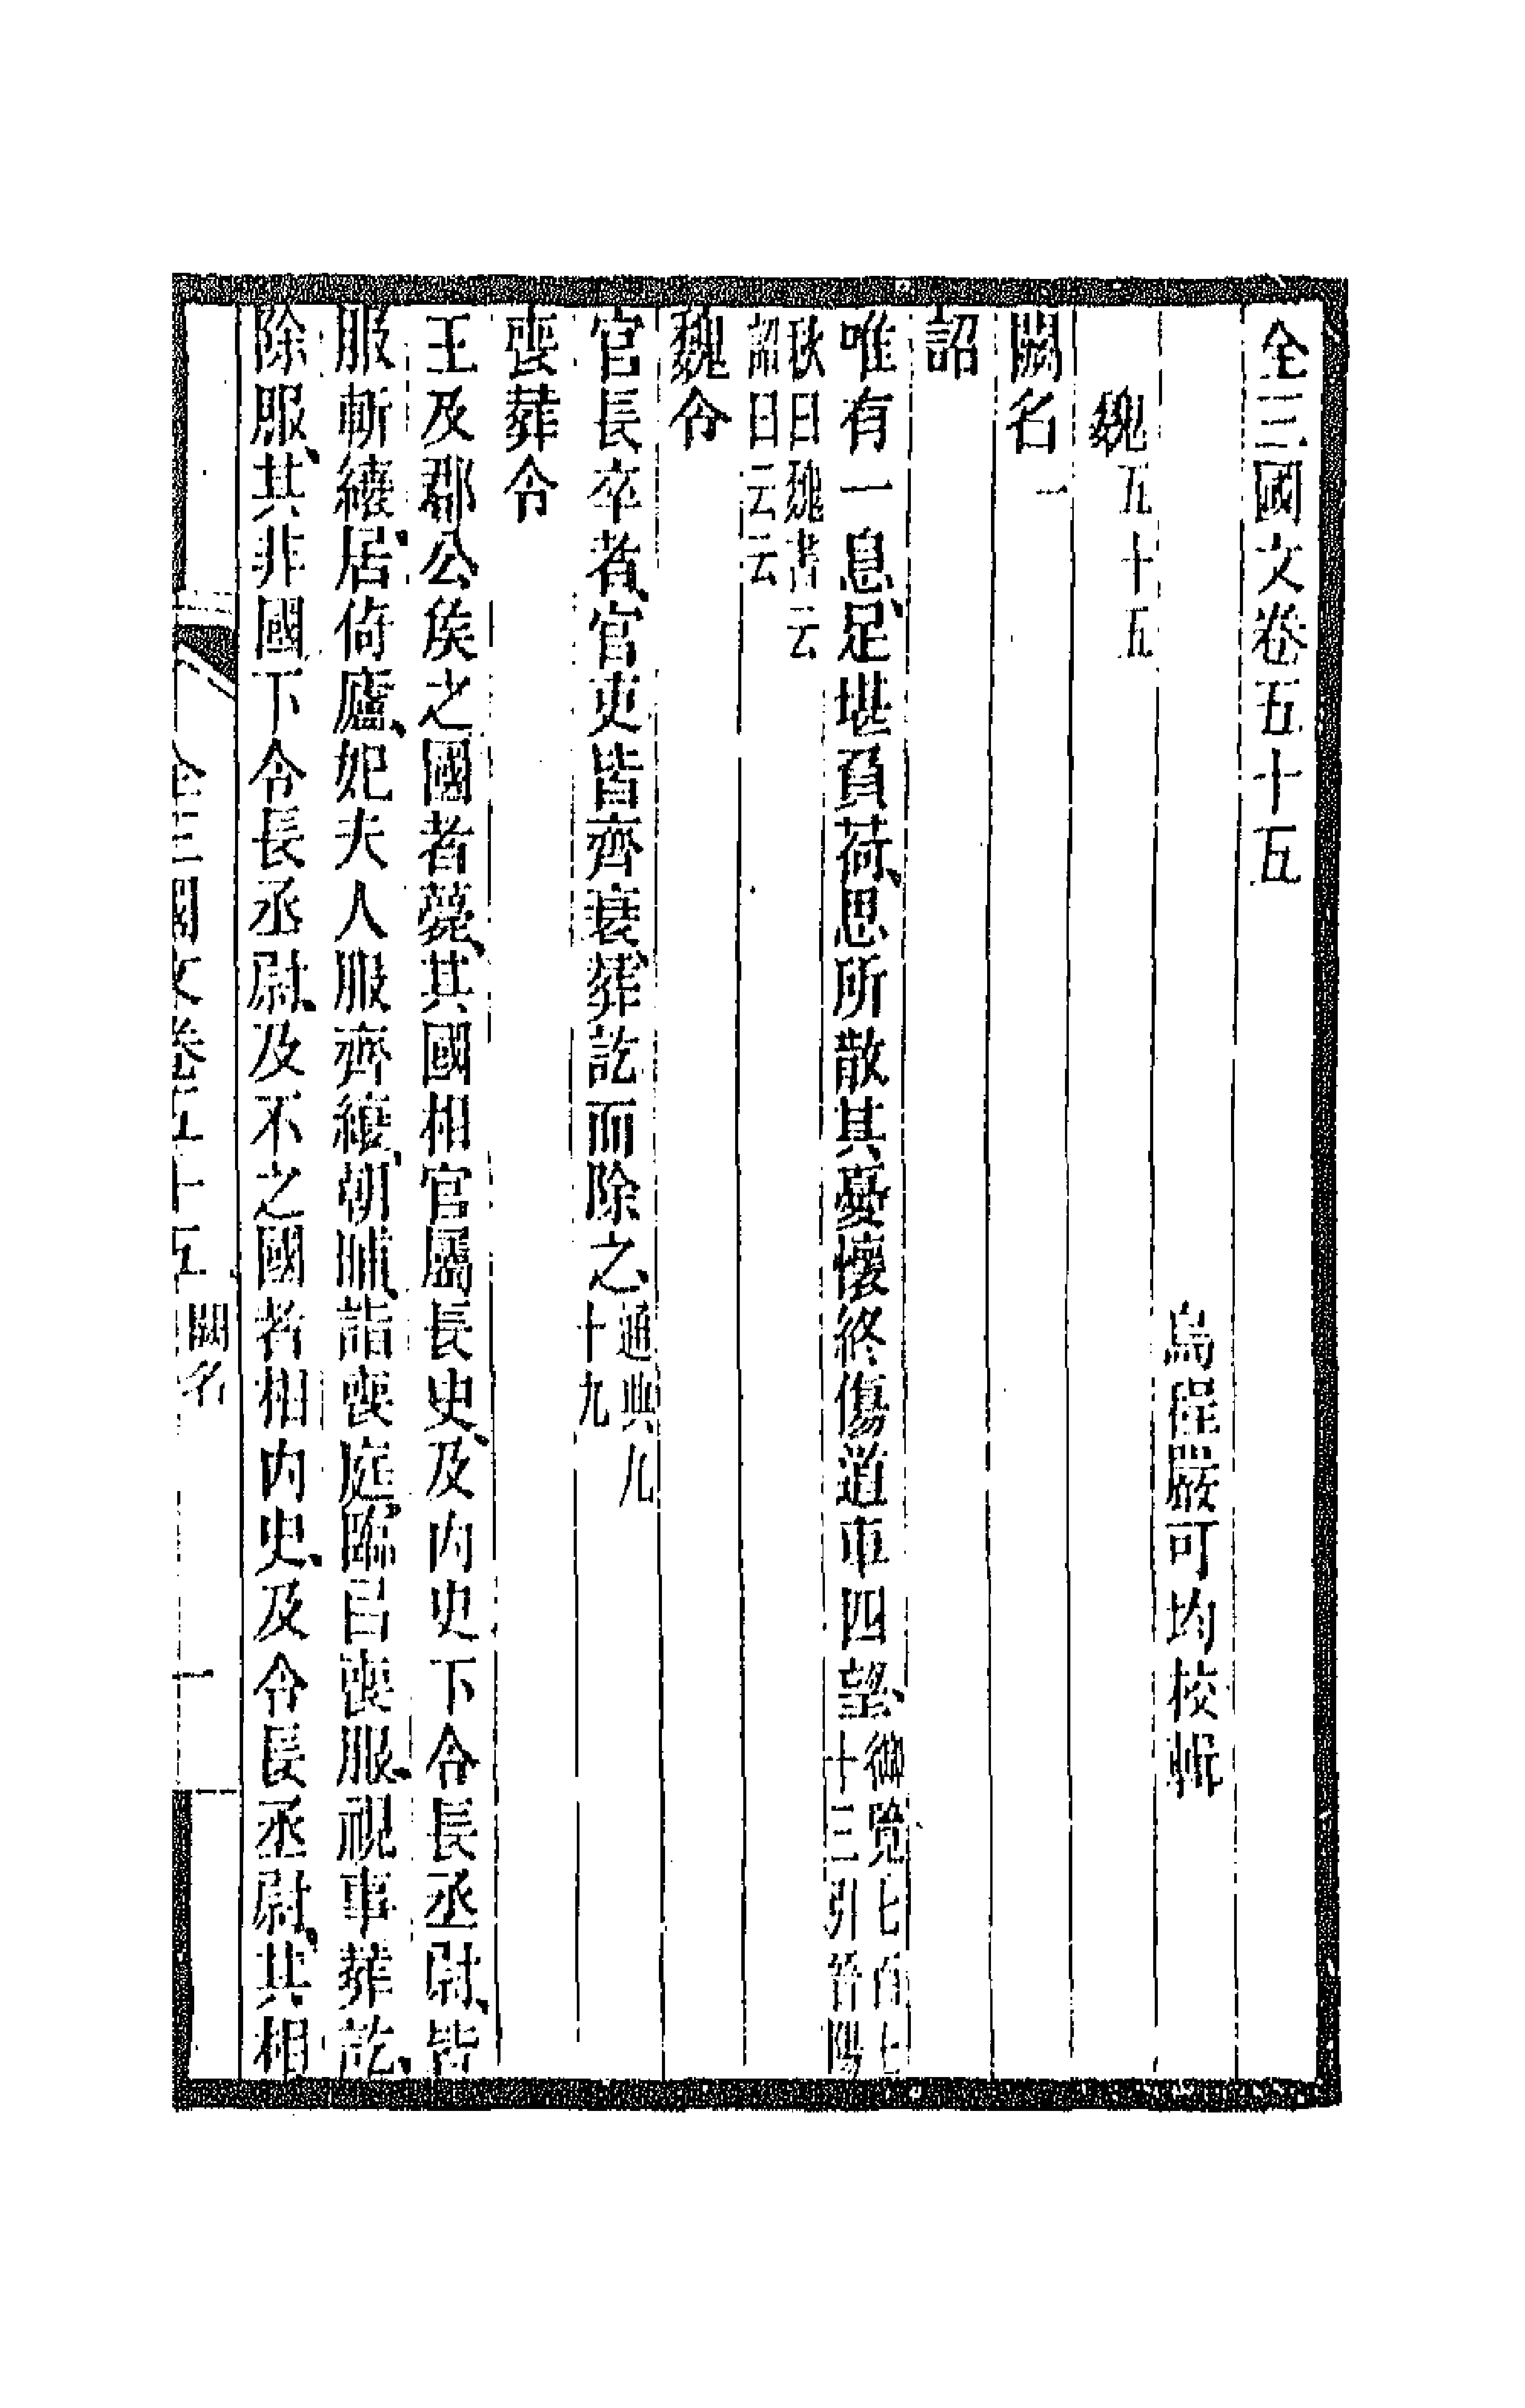 全三國文卷五十五
烏程嚴可均校輯
魏五十五
闕名一
詔
唯有一息、足堪負荷、思所散其憂懷終傷道車四望、御覽七百七十三引晉陽
秋曰魏書云詔曰云云
魏令
官長卒者、官吏皆齊衰、葬訖而除之、通典九十九
喪葬令
王及郡公侯之國者薨、其國相官屬長史、及內史下令長丞尉、皆
服斬縗、居倚廬、妃夫人服齊縗、朝晡、詣喪庭、臨㠯喪服、視事葬訖、
除服、其非國下令長丞尉、及不之國者相內史、及令長丞尉、其相
全三國文卷五十五 闕名 一